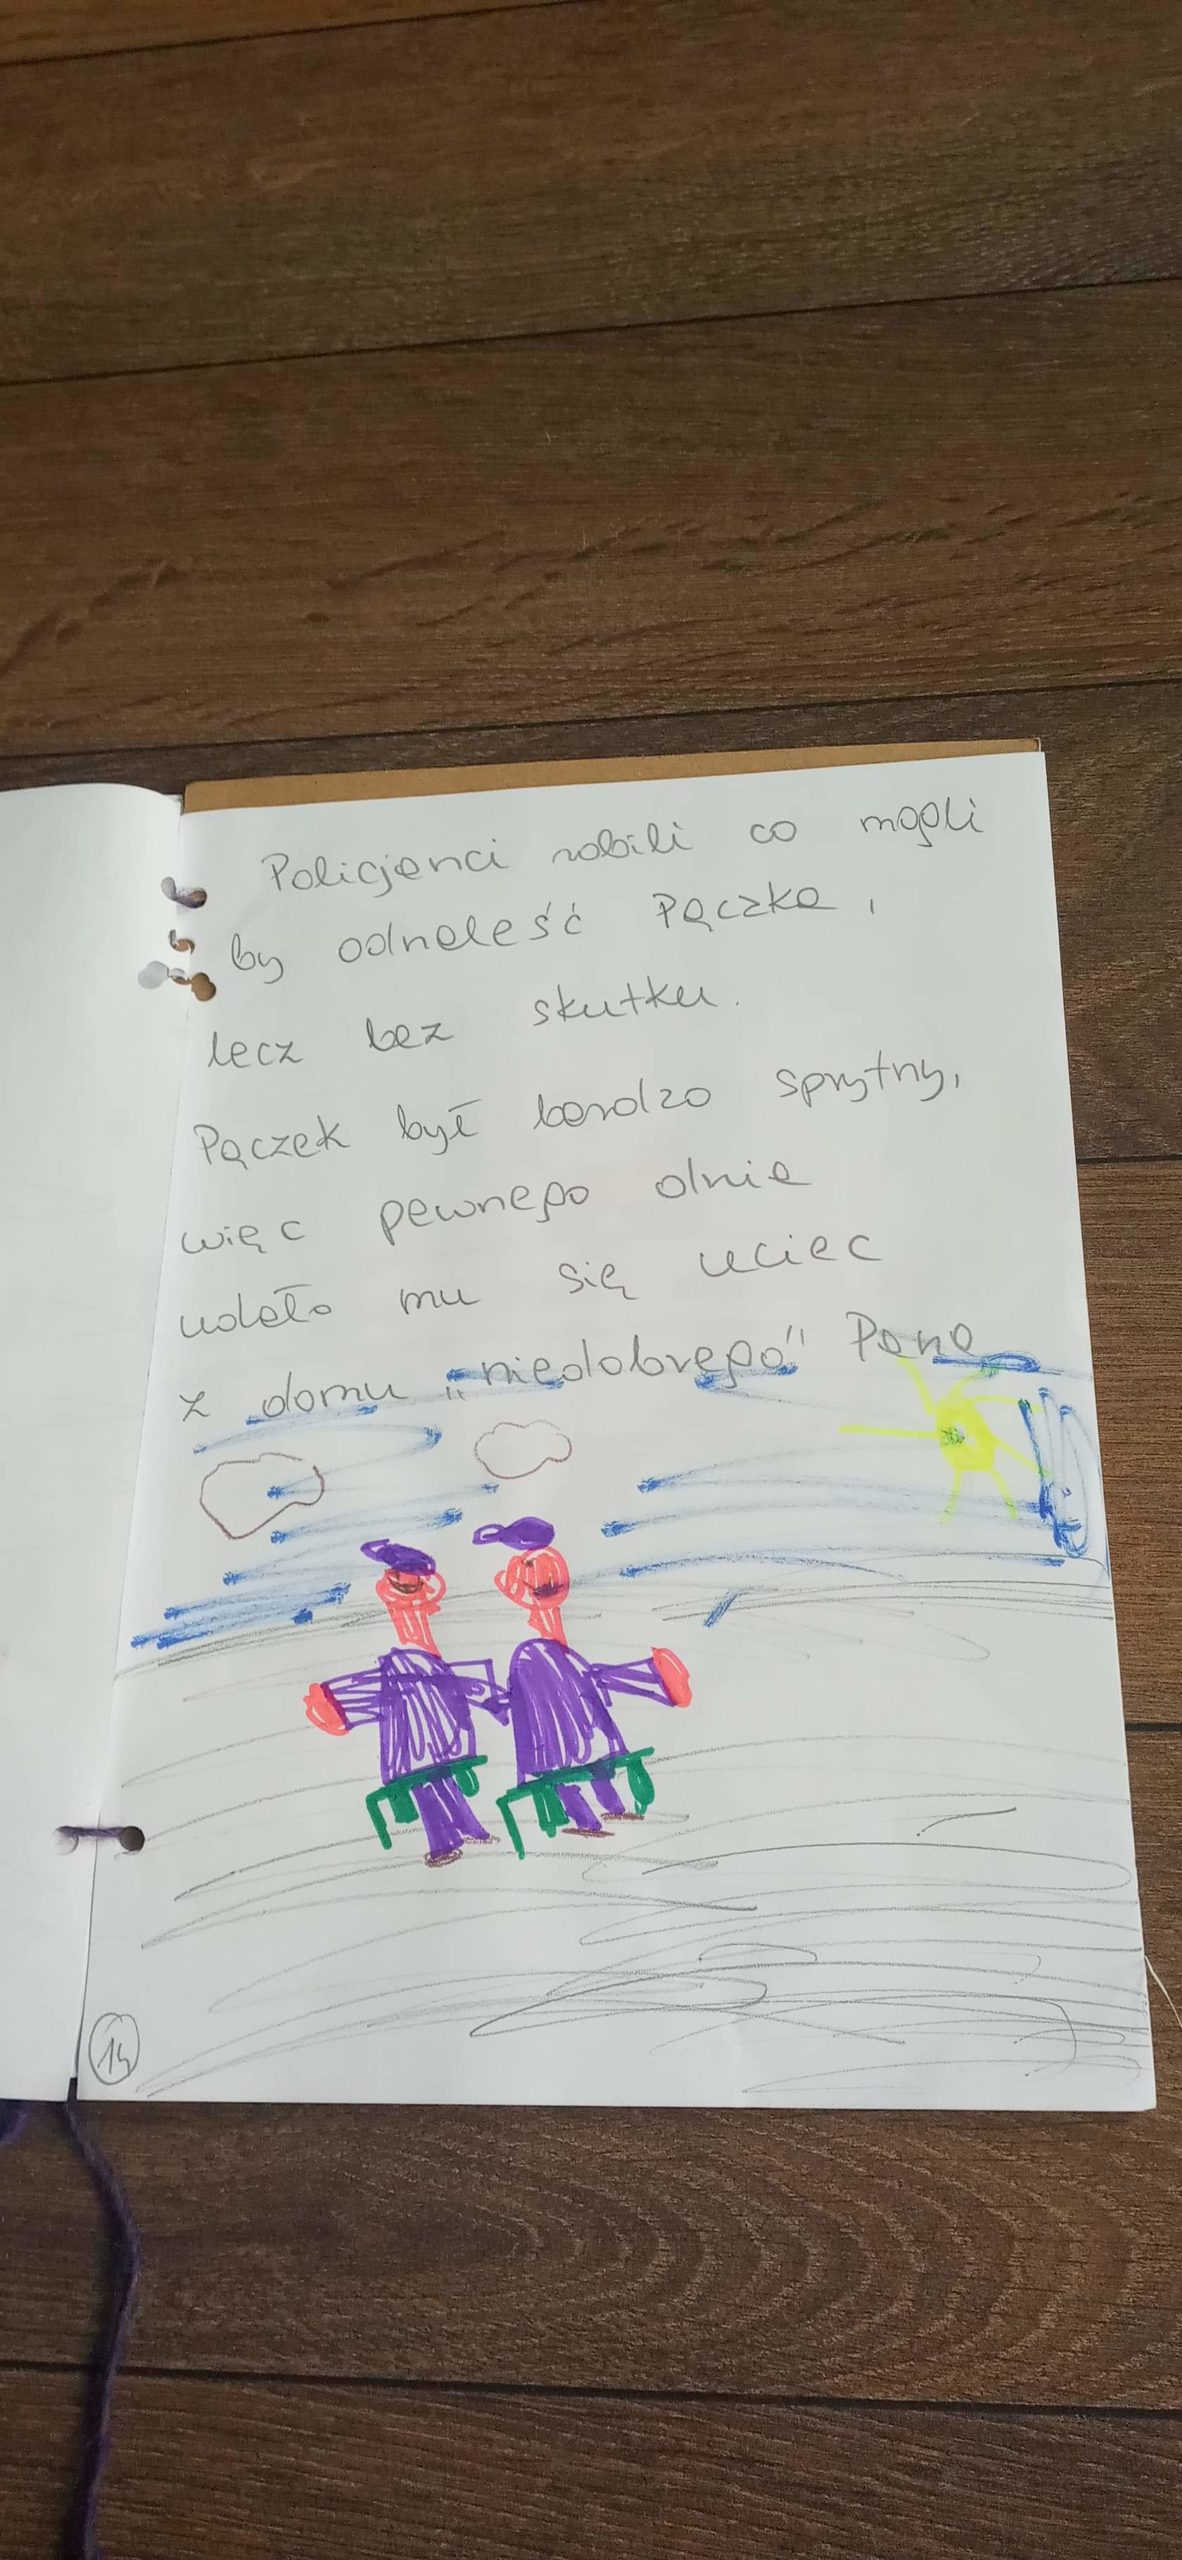 Policjanci robili co mogli
by odnaleść Pączka,
lecz bez skutku.
Pączek był bardzo sprytny,
więc pewnego dnia
udało mu się uciec
z domu „niedobrego" Pana
14